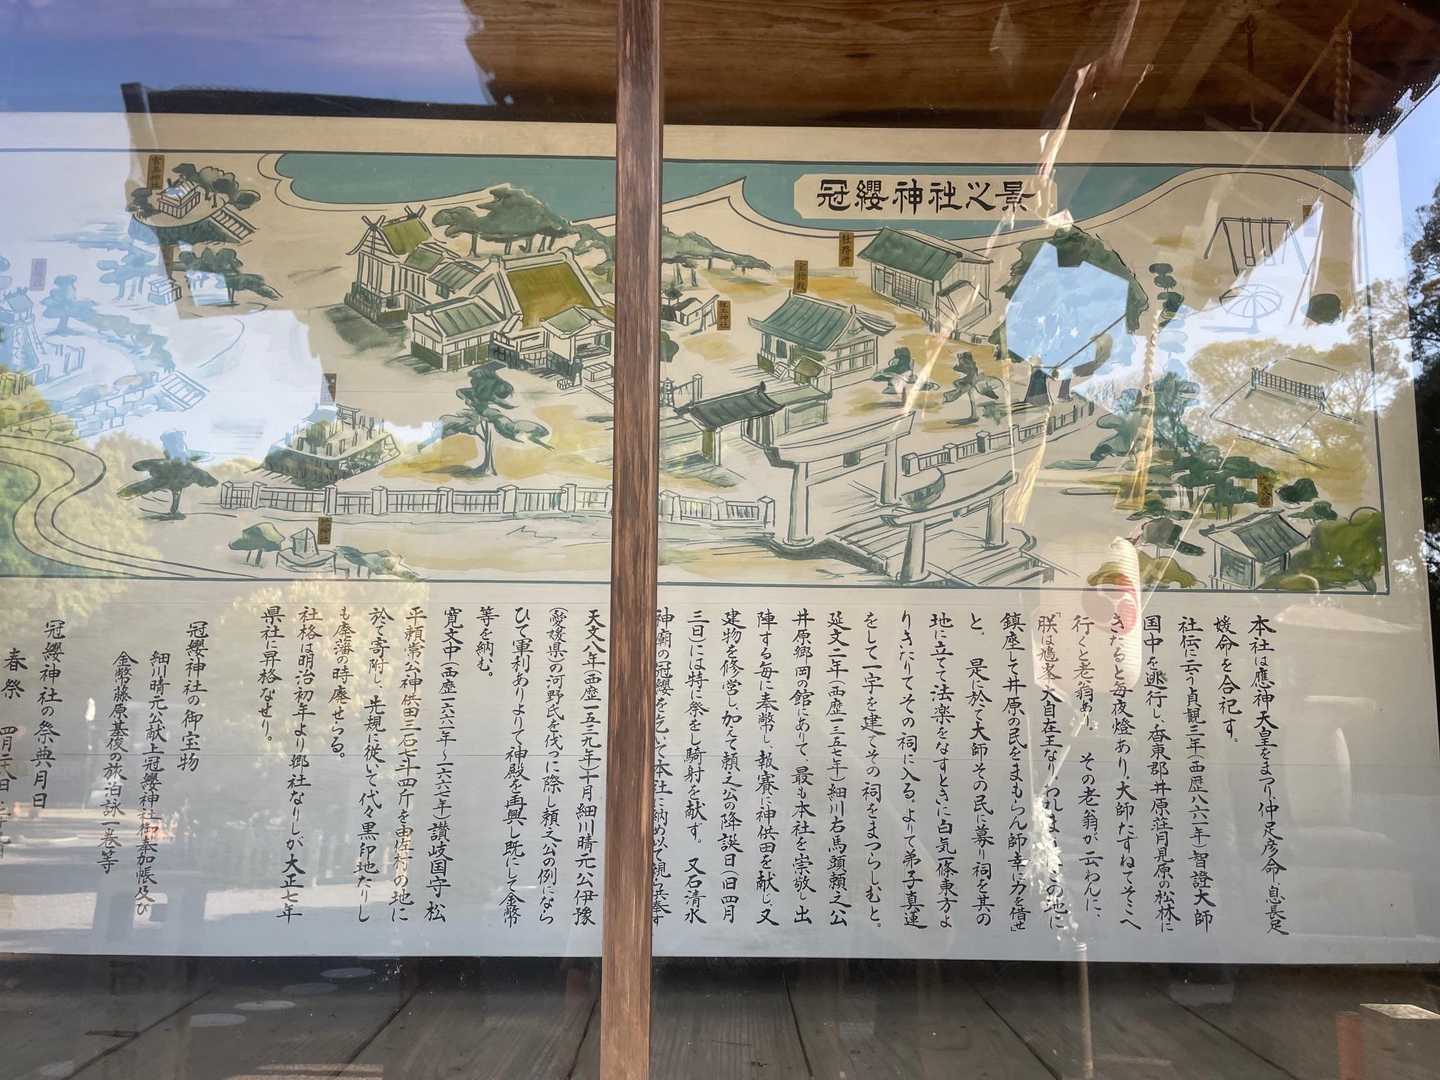 冠纓神社之景
本社は應神天皇をまつり、仲足彦命、息長足
媛命を合祀す。
社伝に云う貞観三年(西歴八六一年)智證大師
国中を巡行し、香東郡井原荘月見原の松林に
きたると毎夜燈あり、大師たずねてそこへ
行くと老翁あり。その老翁が云わんに、
「朕は鳩峯大自在王なりわれはこの地に
鎮座して井原の民をまもらん師幸に力を借せ」
と。是に於て大師その民に募り祠を其の
地に立てて法楽をなすときに白気一條東方よ
りきたりてその祠に入る。よりて弟子真運
をして一宇を建てその祠をまつらしむと。
延文二年(西歴一三五七年)細川右馬頭頼之公
井原郷岡の館にあって、最も本社を崇敬し出
陣する毎に奉幣し、報賽に神供田を献し、又
建物を修営し、加えて頼之公の降誕日(旧四月
三日)には特に祭をし騎射を献す。又石清水
神廟の冠纓を乞いて本社に納め以て
天文八年(西歴一五三九年)十月細川晴元公伊豫
(愛媛県)の河野氏を伐つに際し頼之公の例になら
ひて軍利ありよりて神殿を再興し既にして金幣
等を納む。
寛文中(西歴一六六一年~一六六七年)讃岐国守松
平頼常公神供田三石七斗四斤を由佐村の地に
於て寄附し、先規に従いて代々黒印地たりし
も廃藩の時廃せらる。
社格は明治初年より郷社なりしが、大正七年
県社に昇格なせり。
冠纓神社の御宝物
細川晴元公献上冠纓神社御奉加帳及び
金幣藤原基俊の旅泊詠一巻等
冠纓神社の祭典月日
春祭